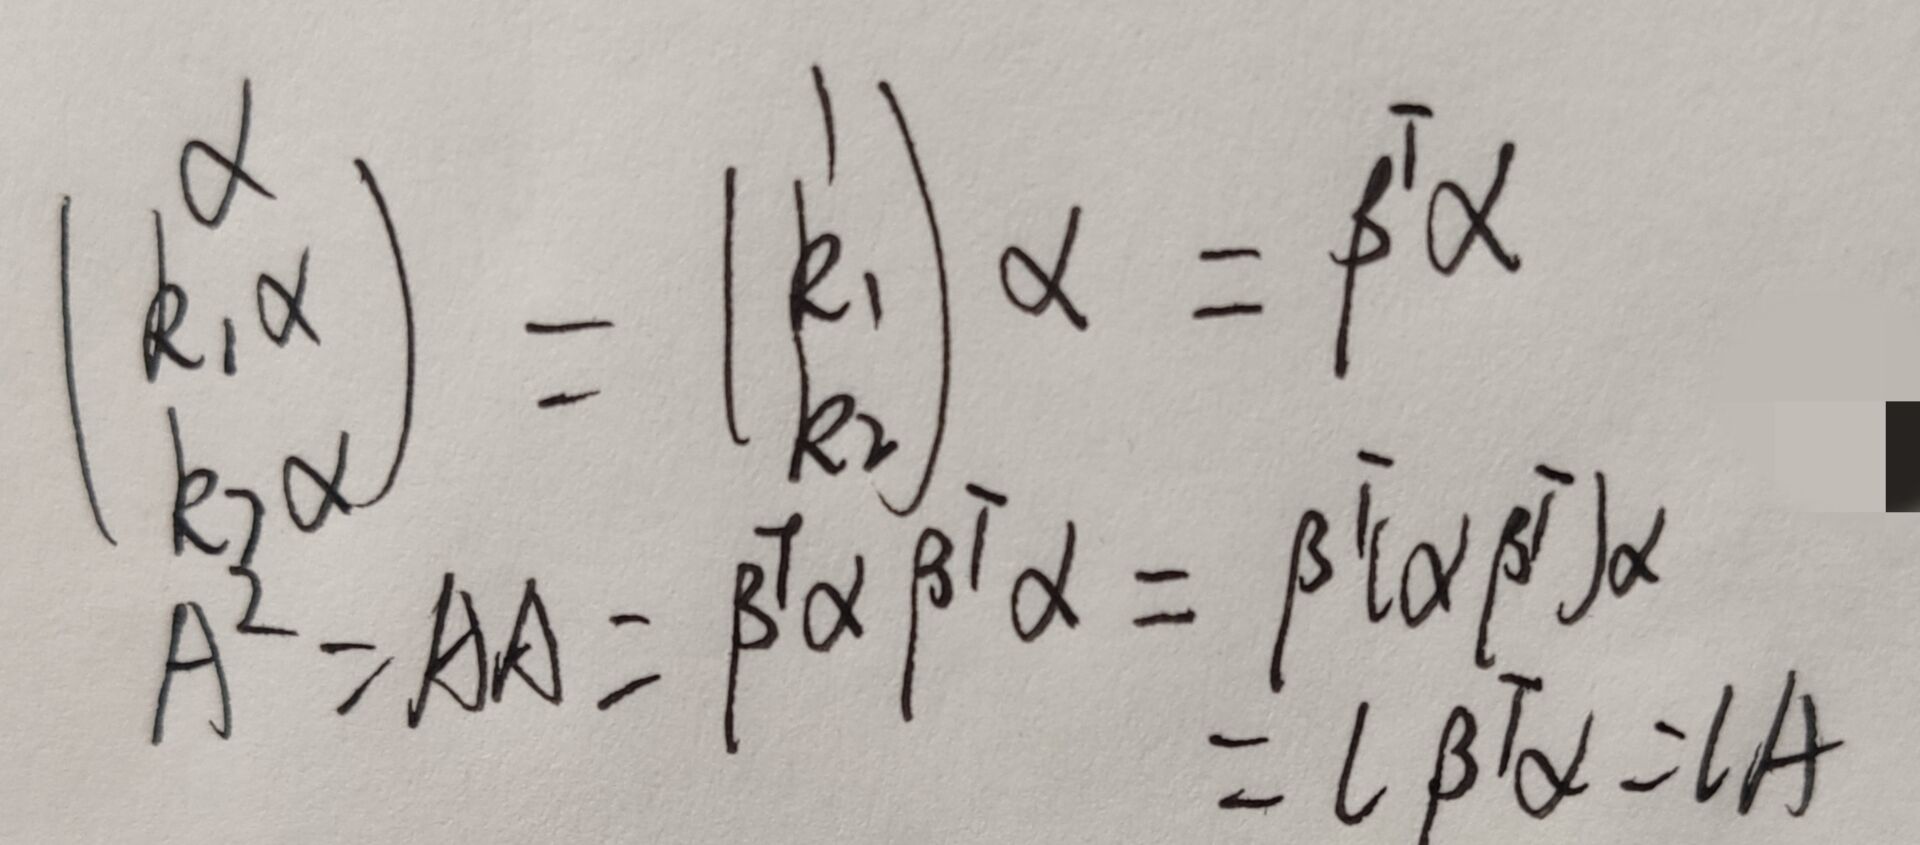 (α k₁α k₂α) = (1 k₁ k₂) α = βᵀα
A² = AA = βᵀα βᵀα = βᵀ(αβᵀ)α
= l βᵀα = lA